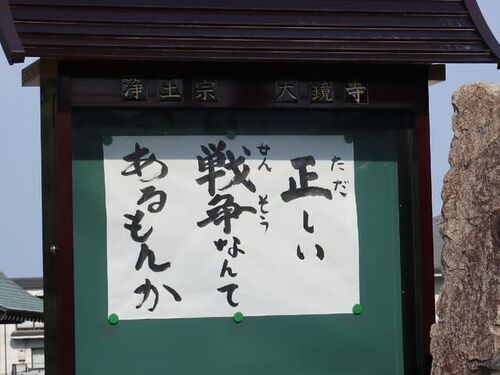 浄土宗 大鏡寺
正しい
ただ
戦争なんて
せんそう
あるもんか